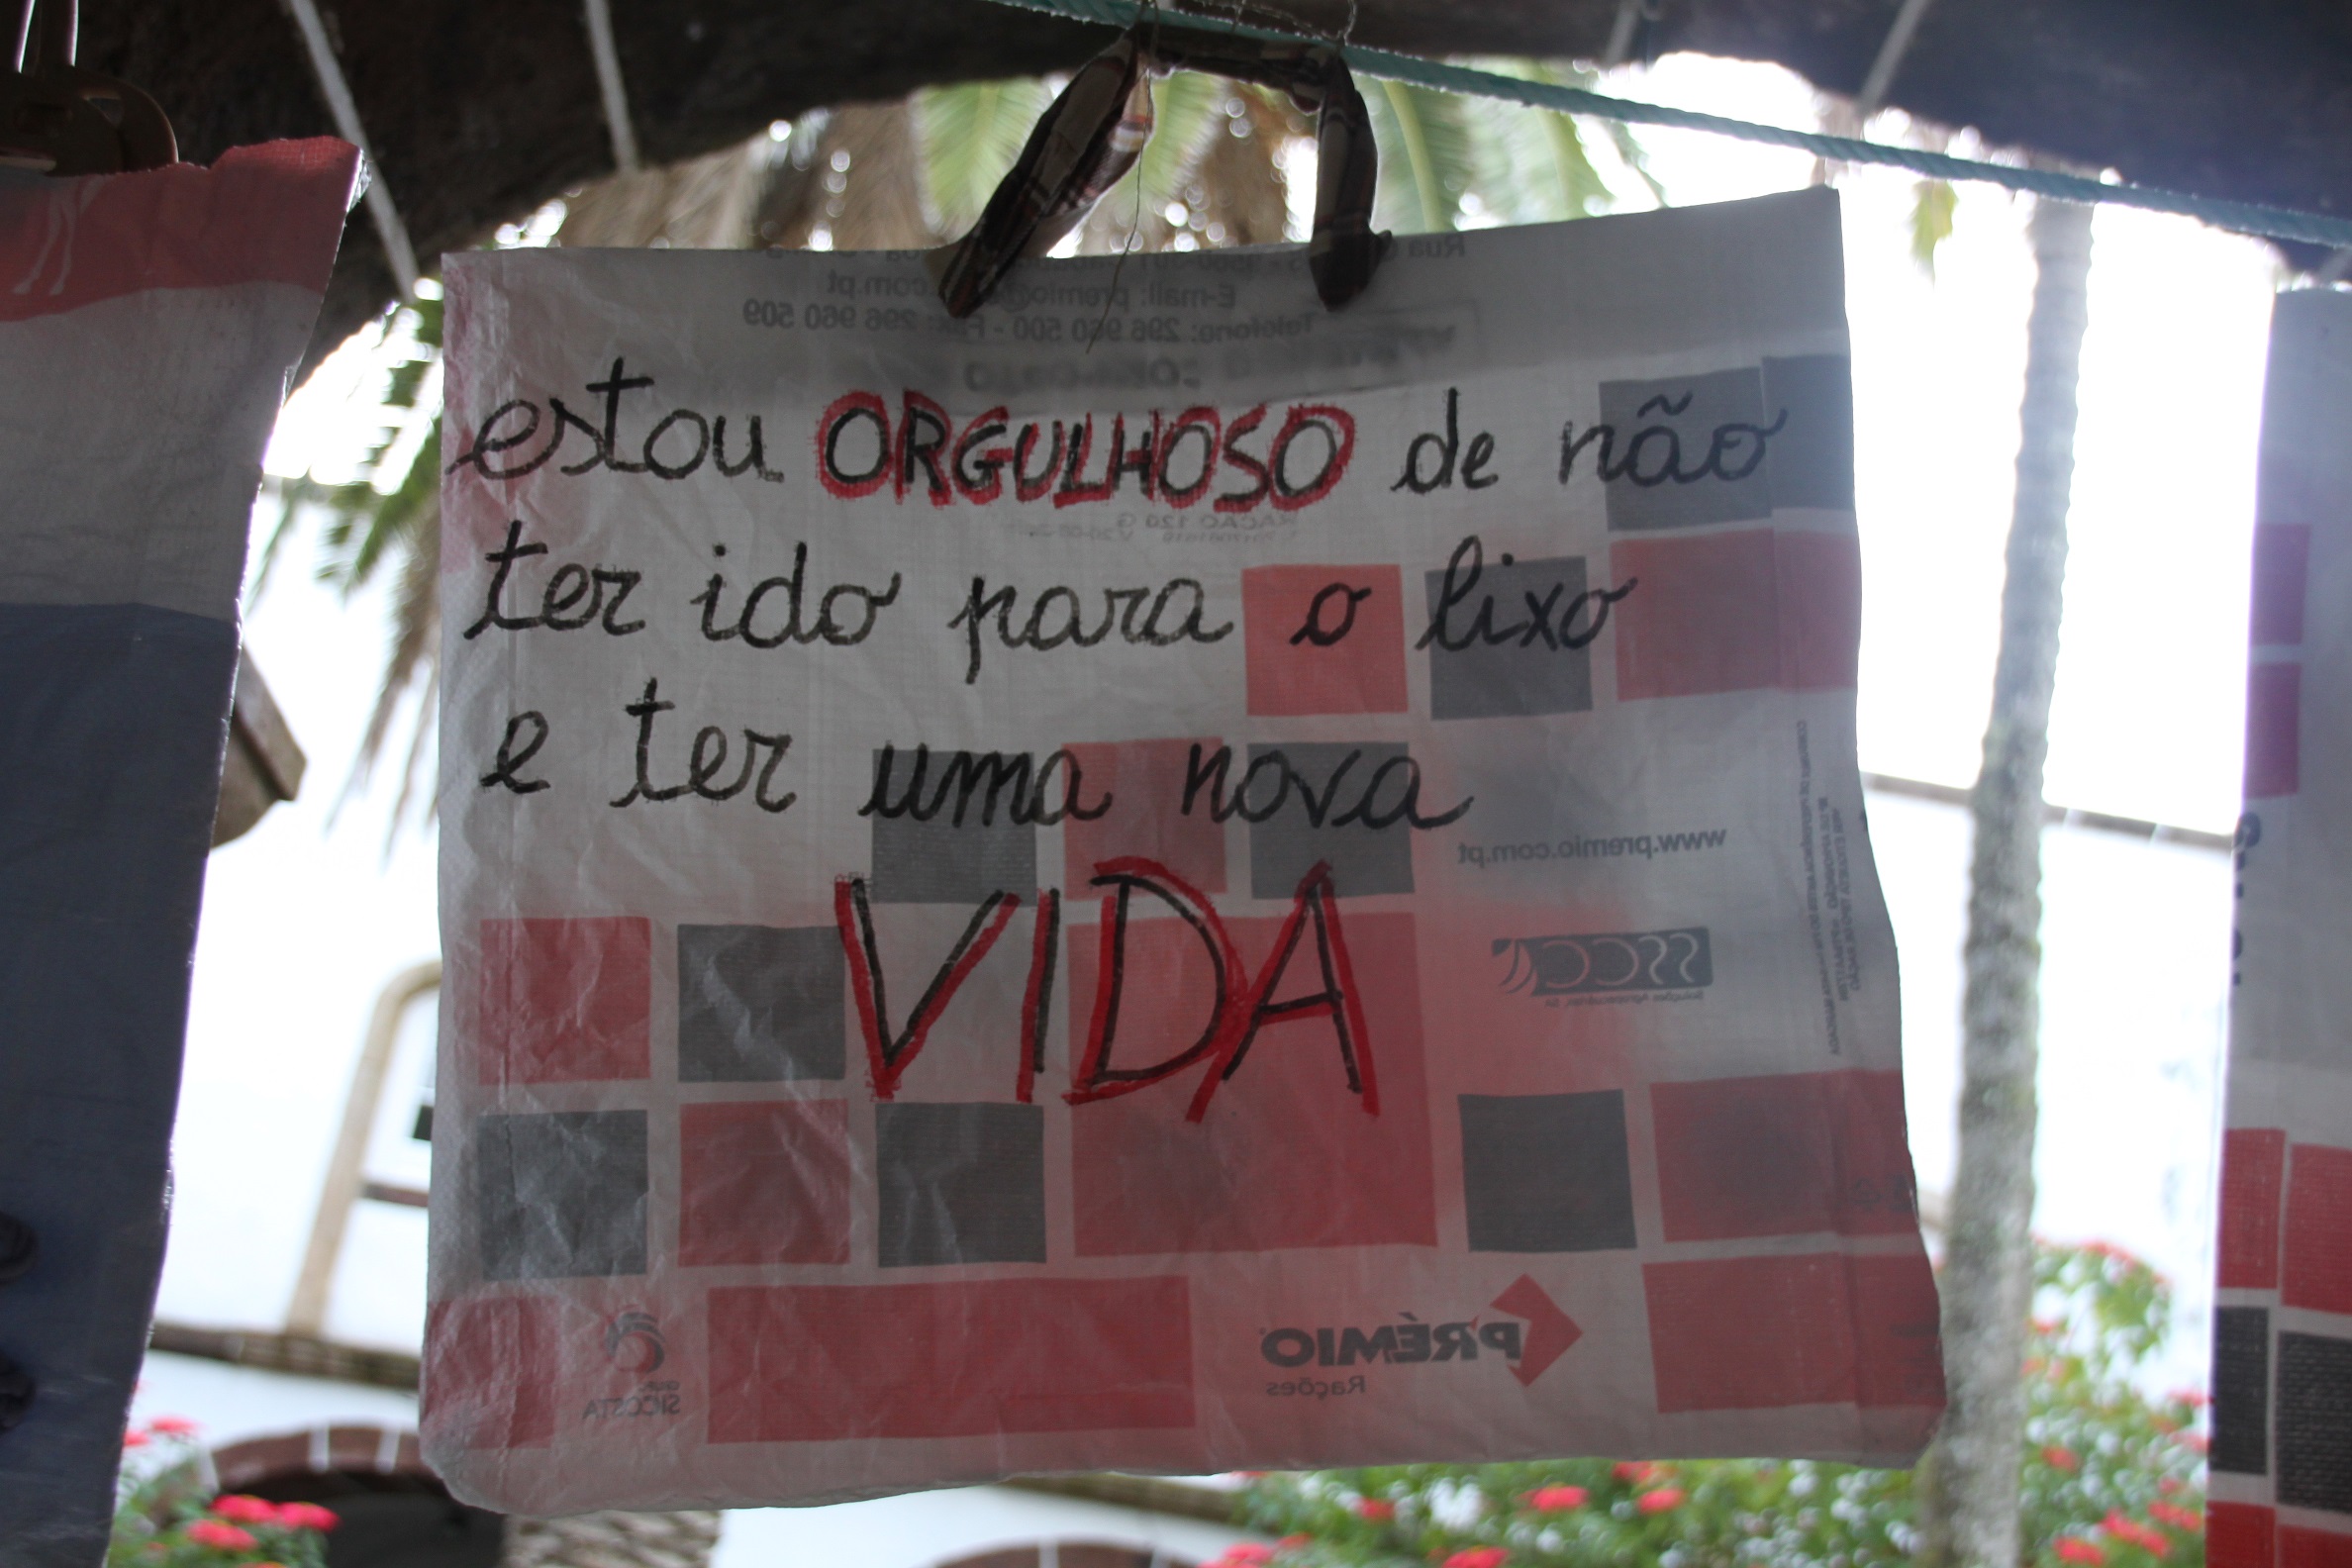 E-mail: premio@
.com.pt
Telefone: 296 960 500 - Fax: 296 960 509
estou ORGULHOSO de não
ter ido para o lixo
e ter uma nova
VIDA
RAÇÃO 120 G
www.premio.com.pt
Soluções Agropecuárias, SA
PRÉMIO
Rações
GRUPO
SICOSTA